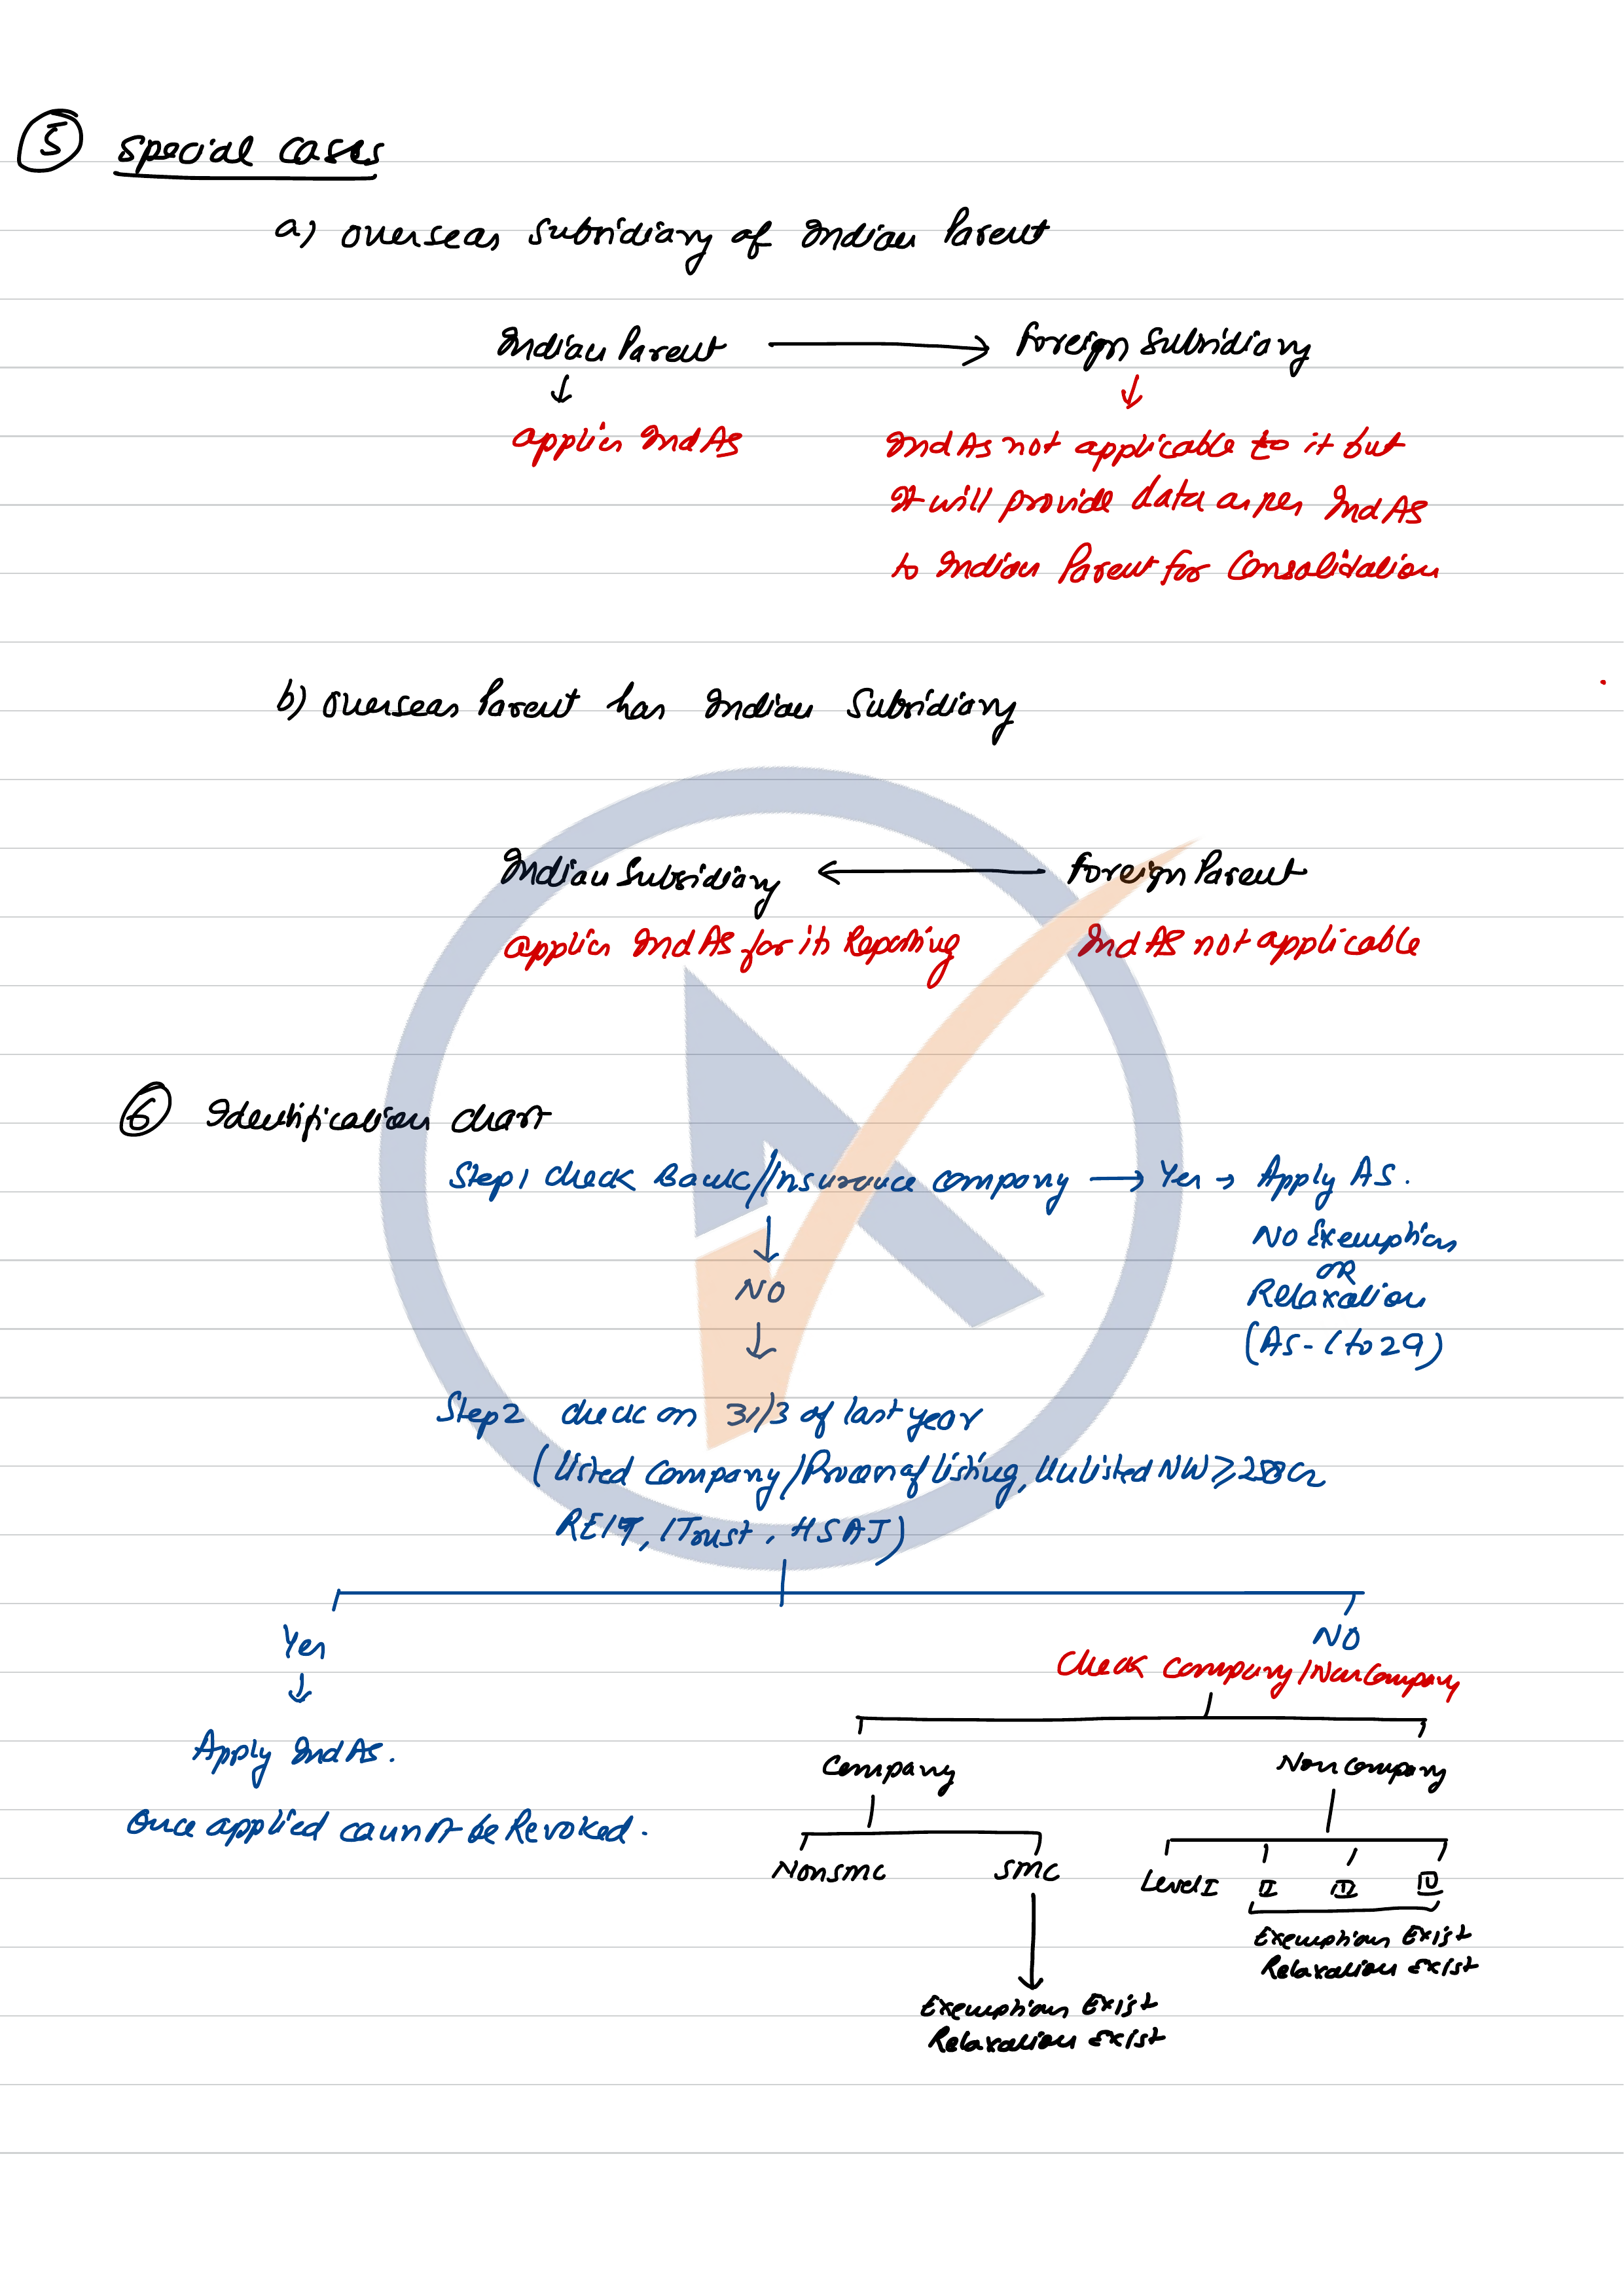 5 Special Cases
a) Overseas Subsidiary of Indian Parent
Indian Parent → Foreign Subsidiary
↓ ↓
applies Ind AS
Ind AS not applicable to it but
It will provide data as per Ind AS
to Indian Parent for Consolidation
b) Overseas Parent has Indian Subsidiary
Indian Subsidiary ← Foreign Parent
applies Ind AS for its Reporting
Ind AS not applicable
6 Identification chart
Step 1 check Bank/Insurance company → Yes → Apply AS.
No Exemption
OR
Relaxation
(AS-1 to 29)
↓
NO
↓
Step 2 check on 31/3 of last year
(Listed Company/Process of listing, Unlisted NW ≥ 250 Cr
REIT, ITrust, HSAJ)
Yes
↓
Apply Ind AS.
Once applied cannot be Revoked.
NO
Check Company/Non Company
Company
Non Company
Non SMC
SMC
Level I II III IV
Exemption Exist
Relaxation Exist
Exemption Exist
Relaxation Exist